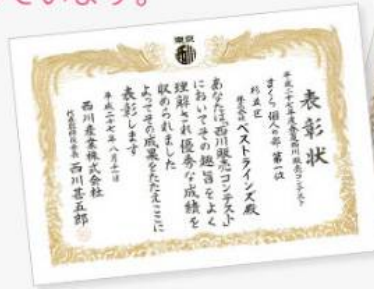 ています。
東京
西川
表彰状
平成二十七年度春夏西川販売コンテスト
まくら 個人の部 第一位
杉並区
株式会社ベストラインズ殿
あなたは「西川販売コンテスト」
においてその趣旨をよく
理解され優秀な成績を
収められました
よってその成果をたたえここに
表彰します
平成二十七年八月十一日
西川産業株式会社
代表取締役社長 西川甚五郎